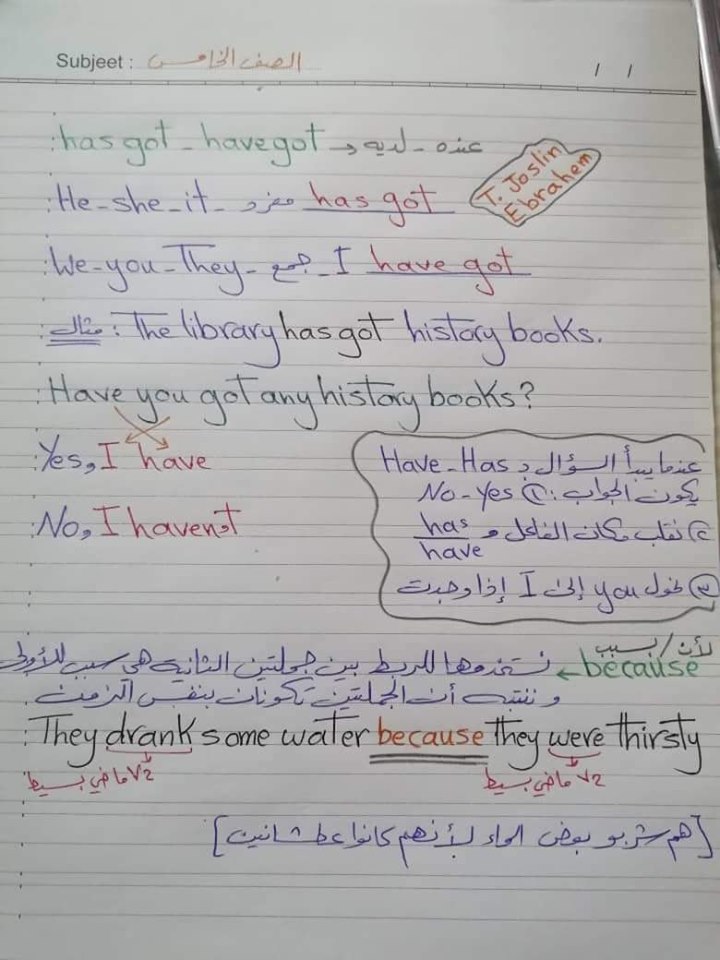 Subject : الصف الخامس / /
:has got - have got → عنده - لديه
T. Joslin
Ebrahem
:He - she - it - مفرد has got
:We - you - They - جمع - I have got
مثال : The library has got history books.
:Have you got any history books?
:Yes, I have
:No, I haven't
عندما يبدأ السؤال بـ Have - Has
يكون الجواب : ① No - Yes
② نقلب مكان الفاعل و has
have
③ نحول you إلى I إذا وجدت
لأن / بسبب
because ← نستخدمها للربط بين جملتين الثانية هي سبب للأولى
و ننتبه أن الجملتين تكونان بنفس الزمن .
:They drank some water because they were thirsty
V2 ماضي بسيط V2 ماضي بسيط
[هم شربو بعض الماء لأنهم كانوا عطشانين]